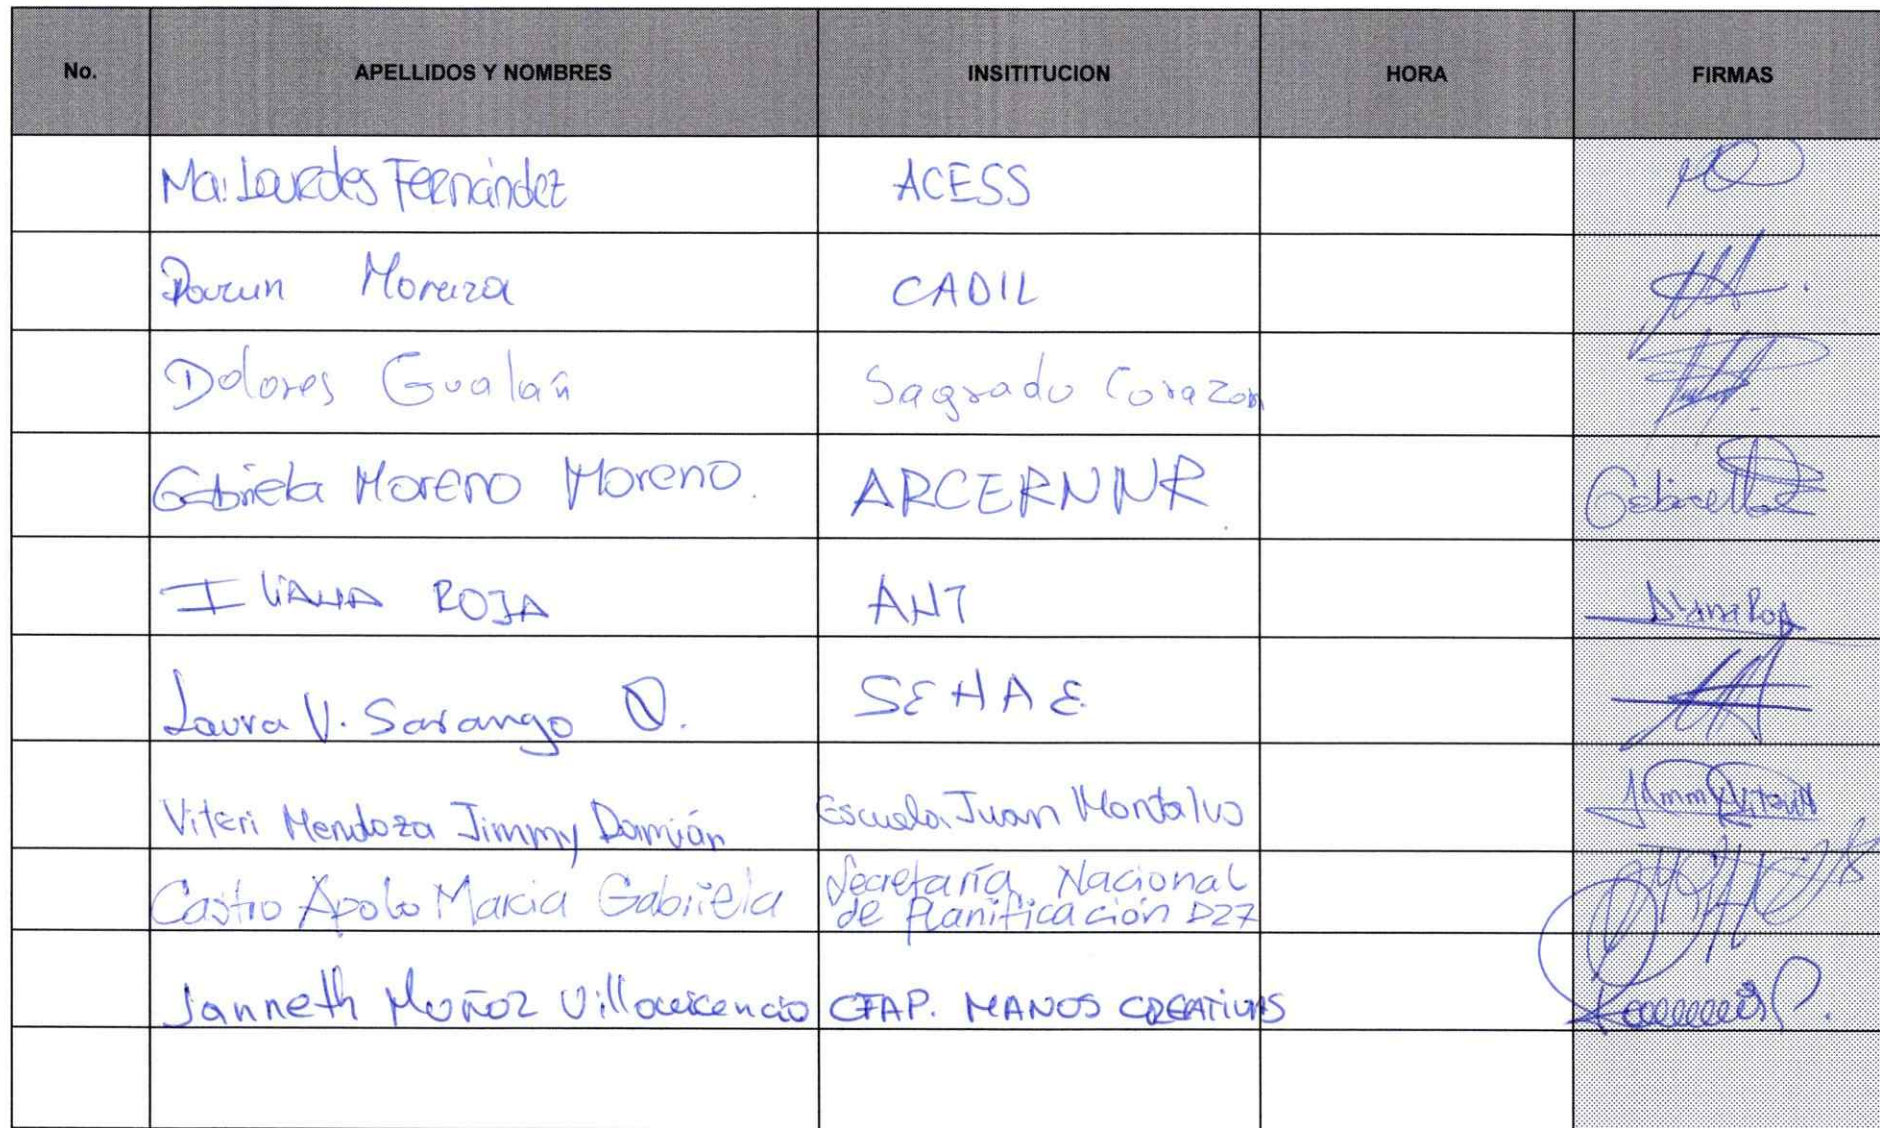 No. APELLIDOS Y NOMBRES INSITITUCION HORA FIRMAS
Ma. Lourdes Fernández ACESS
Moreira CADIL
Dolores Gualán Sagrado Corazon
Gabriela Moreno Moreno. ARCERNNR
ILIANA ROJA ANT
Laura V. Sarango O. SEHAE
Viteri Mendoza Jimmy Damián Escuela Juan Montalvo
Castro Apolo Maria Gabriela Secretaría Nacional
de Planificación D27
Janneth Muñoz Villavicencio CFAP. MANOS CREATIVAS